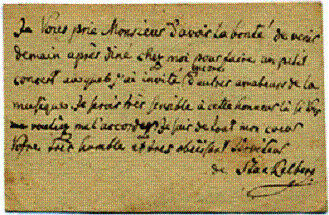 Je Vous prie Monsieur d'avoir la bonté de venir
demain après diné chez moi pour faire un petit
concert auquel j'ai invité encore d'autres amateurs de la
musique. Je serais très sensible à cette honneur là si Vous
me vouliez me l'accorder. Je suis de tout mon coeur
Votre très humble et très obeissant Serviteur
de